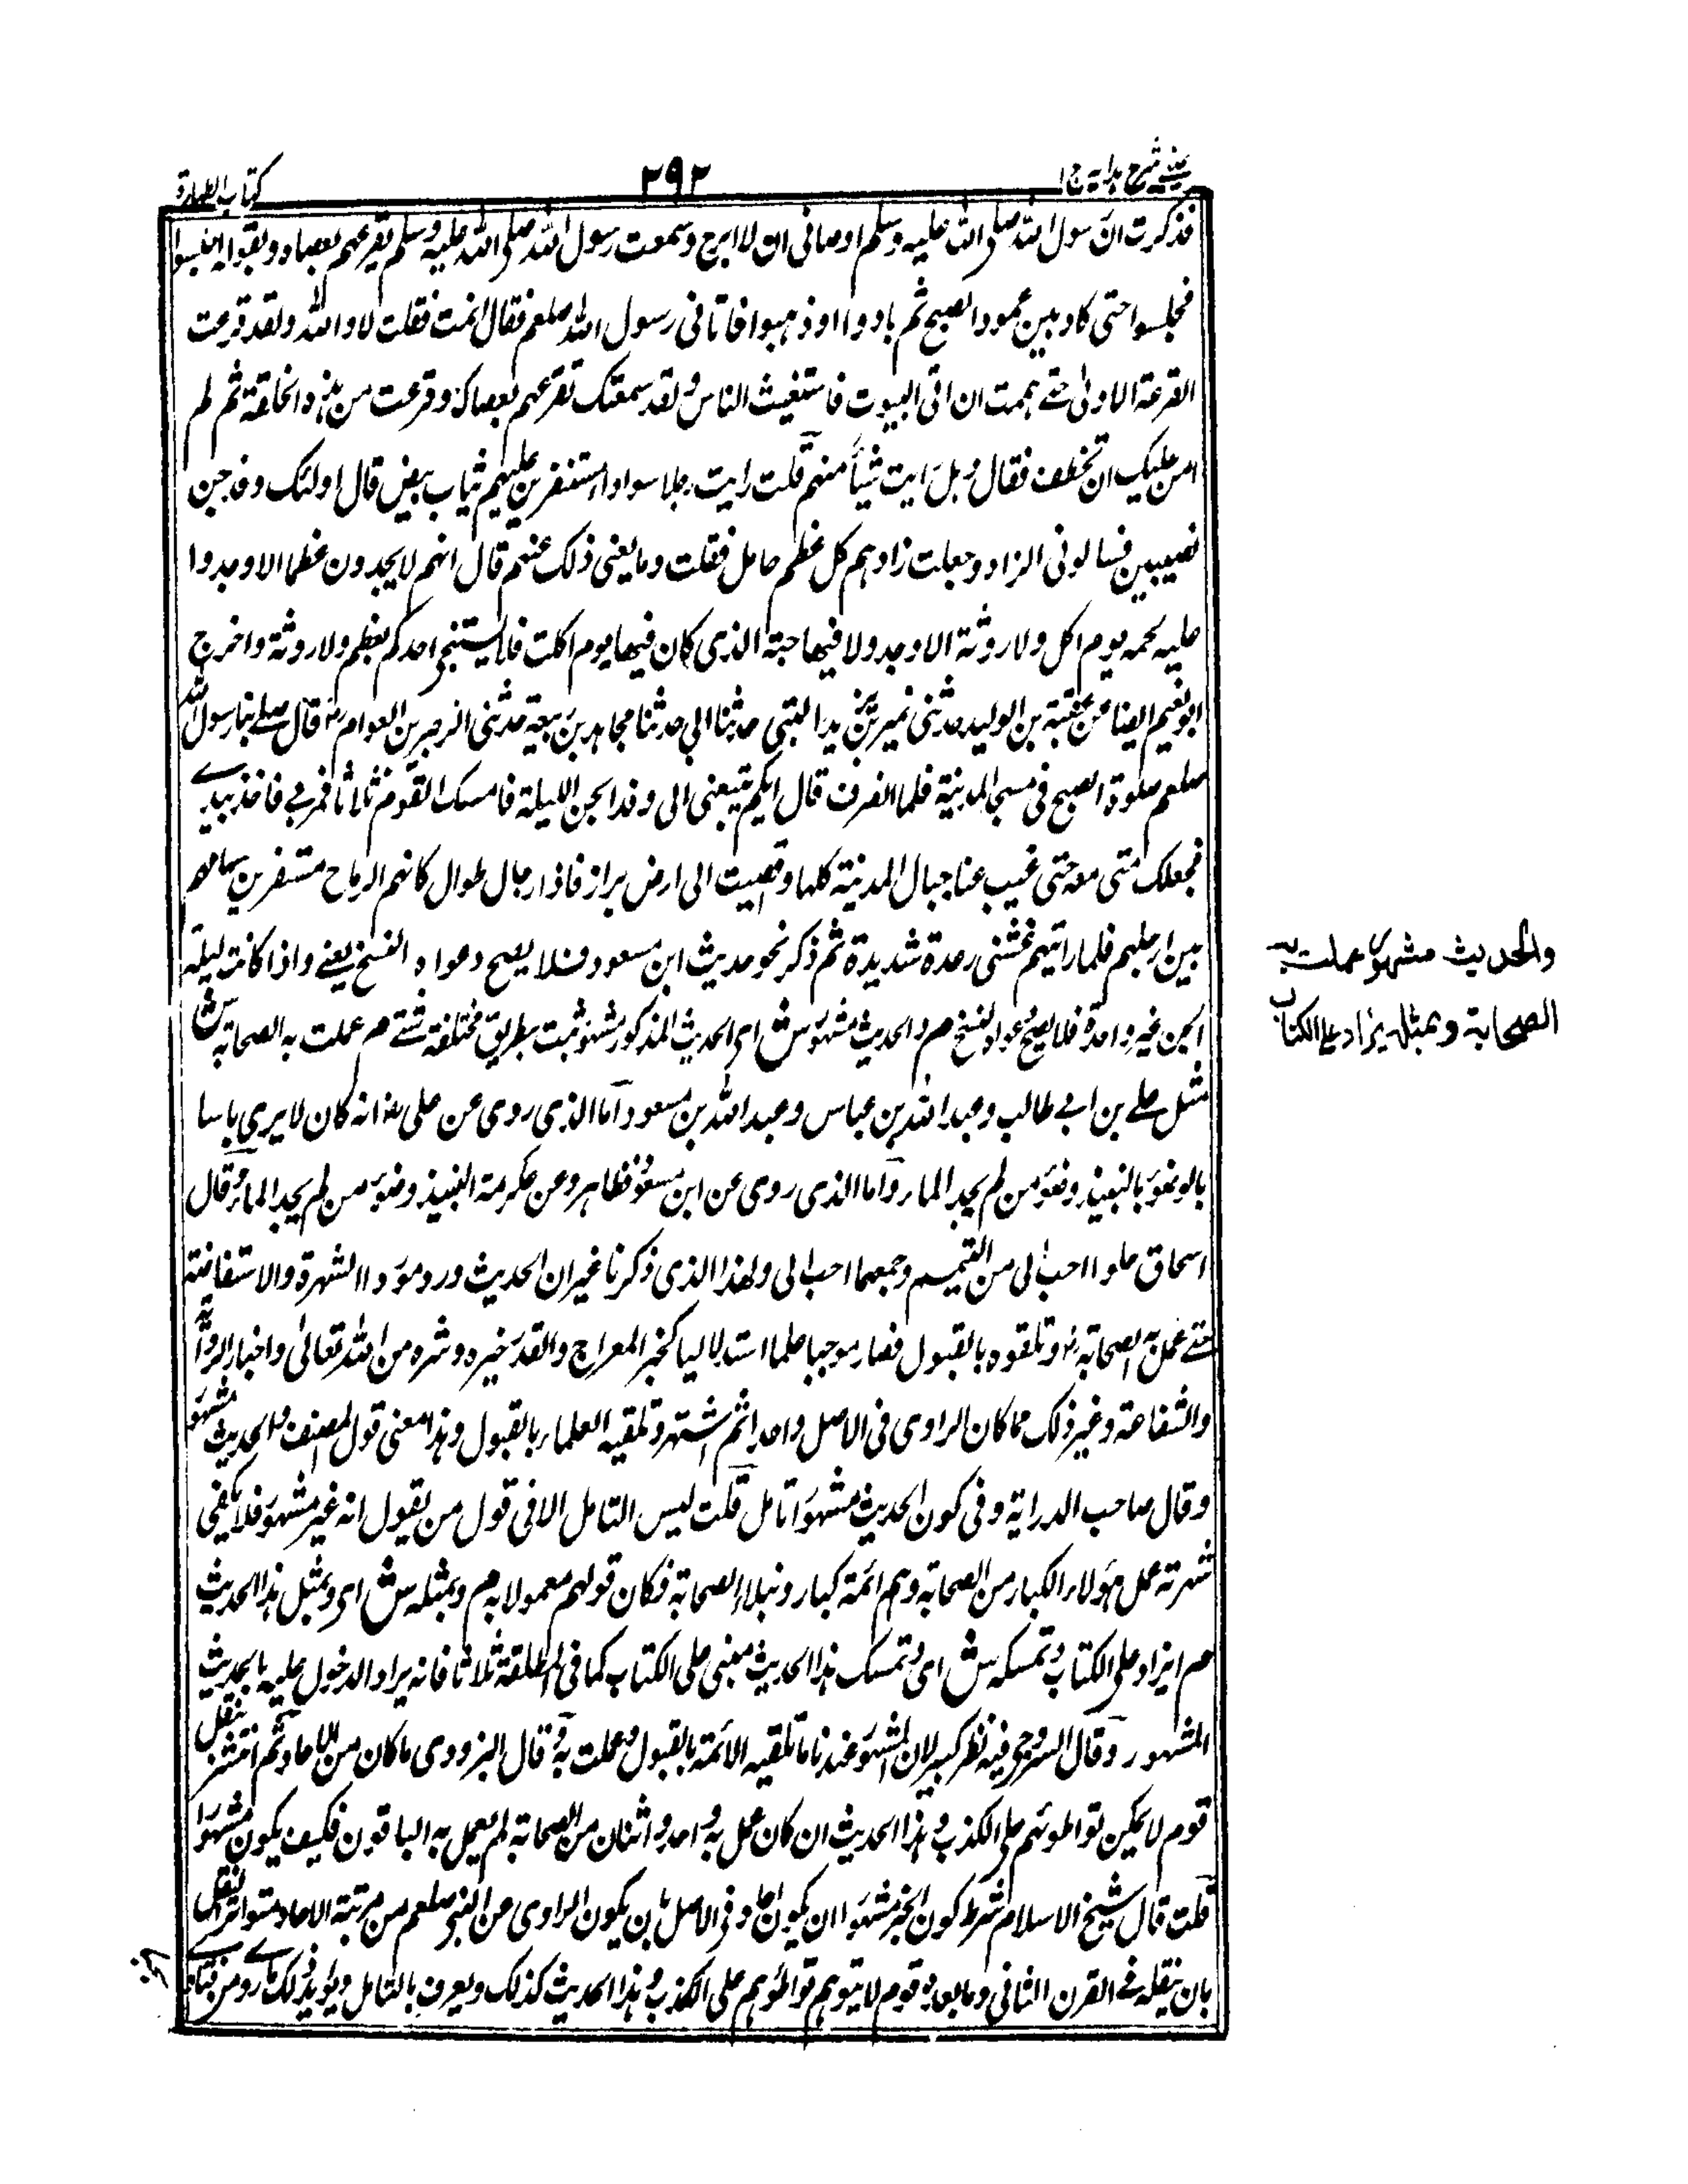 عينى شرح هدايه ج ١
٢٩٢
كتاب الطهارة
فذكرت ان رسول الله صلى الله عليه وسلم اوصانى ان لا ابرح وسمعت رسول الله صلى الله عليه وسلم يقرعهم بعصاه ويقول اجلسوا
فجلسوا حتى كاد يبين عمود الصبح ثم بادوا اوذهبوا فاتانى رسول الله صلعم فقال انمت فقلت لا والله ولقد قرعت
القرعة الاولى حتے هممت ان اتى البيوت فاستغيث الناس ولقد سمعتك تقرعهم بعصاك وقرعت من هذه الخلقة ثم لم
امن عليك ان تخطف فقال وهل رايت شيأ منهم قلت رايت رجلا سوادا مستنفرين عليهم ثياب بيض قال اولئك وفد جن
نصيبين فسالونى الزاد وجعلت زادهم كل عظم حامل فقلت وما يغنى ذلك عنهم قال انهم لا يجدون عظما الا وجدوا
عليه لحمه يوم اكل ولا روثة الا وجدوا فيها حبة الذى كان فيها يوم اكلت فلا يستنجى احدكم بعظم ولا روثة واخرج
ابو نعيم ايضا من عقبة بن الوليد حدثنى نمير بن يزيد القتبى حدثنا ابى حدثنا مجاهد بن ربيعة حدثنى الزبير بن العوام رض قال صلے بنا رسول الله
صلعم صلوة الصبح فى مسجد المدينة فلما انصرف قال ايكم يتبعنى الى وفد الجن الليلة فامسك القوم ثلاثا فمر بى فاخذ بيدے
فجعلت امشى معه حتى غيب عنا جبال المدينة كلها وافضيت الى ارض براز فاذا رجال طوال كانهم الرماح مستنفرين
بين ارجلهم فلما رايتهم غشتنى رعدة شديدة ثم ذكر نحو حديث ابن مسعود فلا يصح دعواه النسخ يعنے واذا كانت ليلة
الجن غير واحدة فلا يصح دعواه النسخ م والحديث مشهور ش اى الحديث المذكور مشهور ثبت بطريق مختلفة شتے م عملت به الصحابة ش
مثل على بن ابے طالب وعبد الله بن عباس وعبد الله بن مسعود اما الذى روى عن على رض انه كان لا يرى باسا
بالوضوء بالنبيذ وضوء من لم يجد الماء واما الذى روى عن ابن مسعود فظاهر وعن عكرمة النبيذ وضوء من لم يجد الماء وقال
اسحاق حلوا احب الى من التيمم وجمعهما احب الى ولهذا الذى ذكرنا غير ان الحديث ورد مورد الشهرة والاستفاضة
حتے عمل به الصحابة رض وتلقوه بالقبول فصار موجبا علما استدلاليا كخبر المعراج والقدر خيره وشره من الله تعالى واخبار الرؤية
والشفاعة وغير ذلك مما كان الراوى فى الاصل واحدا ثم اشتهر وتلقيه العلماء بالقبول وهذا معنى قول المصنف والحديث مشهور
وقال صاحب الدراية وفى كون الحديث مشهورا تامل قلت ليس التامل الا فى قول من يقول انه غير مشهور فلا يكفى
شهرته عمل هؤلاء الكبار من الصحابة وهم ائمة كبار ونبلاء الصحابة فكان قولهم معمولا به م وبمثله ش اى وبمثل هذا الحديث
م ايزاد على الكتاب وتمسكه ش اى وتمسك هذا الحديث مبنى على الكتاب كما فى المطلقة ثلاثا فانه يراد الدخول عليه بالحديث
المشهور وقال السروجى فيه نظر كبير لان المشهور عندنا ما تلقيه الائمة بالقبول وعملت به وقال البزدوى ما كان من الاحاد ثم انتشر بنقل
قوم لا يمكن تواطوئهم على الكذب وهذا الحديث ان كان عمل به واحد واثنان من الصحابة لم يعمل به الباقون فكيف يكون مشهورا
قلت قال شيخ الاسلام شرط كون الخبر مشهورا ان يكون احاد فى الاصل بان يكون الراوى من النبى صلعم من مرتبة الاحاد متواتر النقل
بان ينقله فے القرن الثانى وما بعده قوم لا يتوهم تواطؤهم على الكذب وهذا الحديث كذلك ويعرف بالتامل ويؤيد ذلك ما روى من
والحديث مشهور عملت به
الصحابة وبمثله يزاد على الكتاب